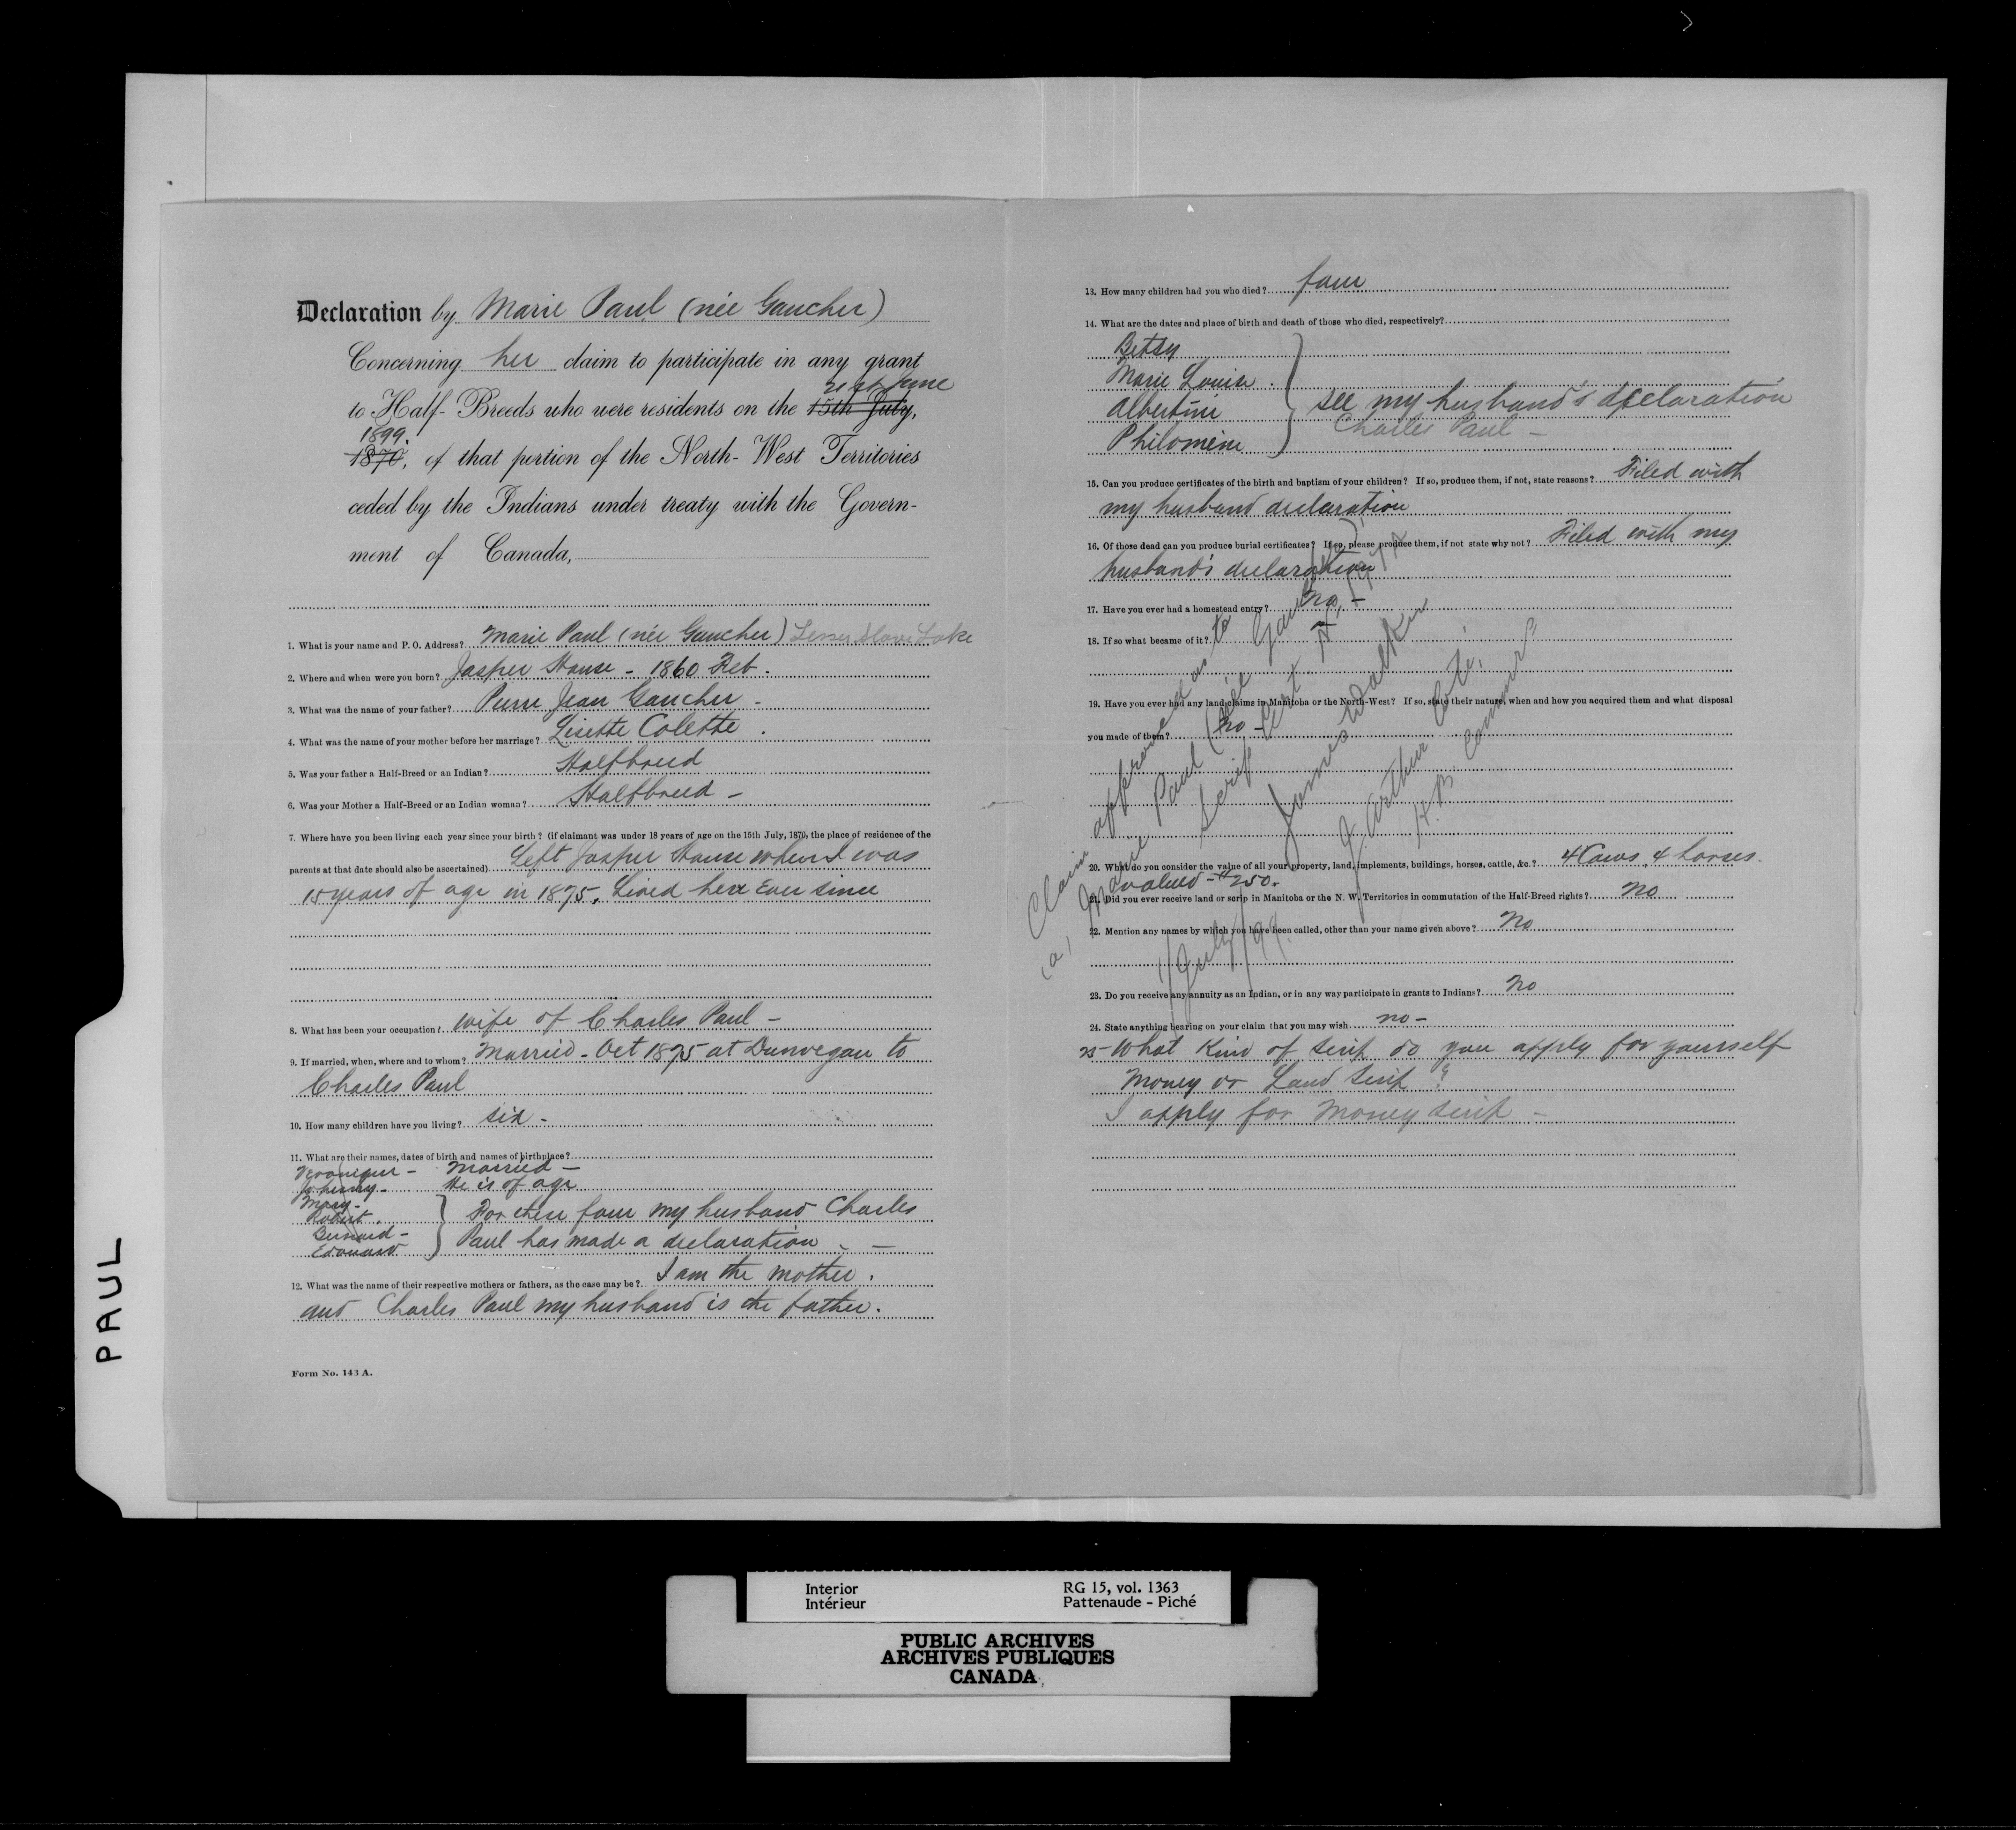 Declaration by Marie Paul (née Gaucher)
Concerning her claim to participate in any grant
21st June
to Half-Breeds who were residents on the 15th July,
1899.
1870, of that portion of the North-West Territories
ceded by the Indians under treaty with the Govern-
ment of Canada,
1. What is your name and P. O. Address? Marie Paul (née Gaucher) Lesser Slave Lake
2. Where and when were you born? Jasper House - 1860 Feb.
3. What was the name of your father? Pierre Jean Gaucher -
4. What was the name of your mother before her marriage? Lisette Colette.
5. Was your father a Half-Breed or an Indian? Halfbreed
6. Was your Mother a Half-Breed or an Indian woman? Halfbreed -
7. Where have you been living each year since your birth? (if claimant was under 18 years of age on the 15th July, 1870, the place of residence of the
parents at that date should also be ascertained) Left Jasper House when I was
15 years of age in 1875. Lived here Ever since
8. What has been your occupation? Wife of Charles Paul -
9. If married, when, where and to whom? Married - Oct 1875 at Dunvegan to
Charles Paul
10. How many children have you living? six -
11. What are their names, dates of birth and names of birthplace?
Veronique - Married -
Johenny - He is of age
Mary -
Robert. } For these four my husband Charles
Bernard -
Edouard } Paul has made a declaration - -
12. What was the name of their respective mothers or fathers, as the case may be? I am the mother.
and Charles Paul my husband is the father.
Form No. 143 A.
13. How many children had you who died? four
14. What are the dates and place of birth and death of those who died, respectively?
Betsy
Marie Louise.
Albertine } see my husband's declaration
Philomène Charles Paul -
15. Can you produce certificates of the birth and baptism of your children? If so, produce them, if not, state reasons? Filed with
my husband declaration
16. Of those dead can you produce burial certificates? If so, please produce them, if not state why not? Filed with my
husband's declaration
17. Have you ever had a homestead entry? No -
18. If so what became of it?
19. Have you ever had any land claims in Manitoba or the North-West? If so, state their nature, when and how you acquired them and what disposal
you made of them? No -
20. What do you consider the value of all your property, land, implements, buildings, horses, cattle, &c.? 4 Cows 4 horses.
valued - $250.
21. Did you ever receive land or scrip in Manitoba or the N. W. Territories in commutation of the Half-Breed rights? No
22. Mention any names by which you have been called, other than your name given above? No
23. Do you receive any annuity as an Indian, or in any way participate in grants to Indians? No
24. State anything bearing on your claim that you may wish no -
25 - What Kind of Scrip do you apply for yourself
Money or Land Scrip?
I apply for Money Scrip -
Claim approved as to
(a) Marie Paul (née Gaucher)
Scrip Cert. A
James Walker
J. Arthur Coté,
H. B. Commrs
July /99.
PAUL
Interior
Intérieur
RG 15, vol. 1363
Pattenaude - Piché
PUBLIC ARCHIVES
ARCHIVES PUBLIQUES
CANADA